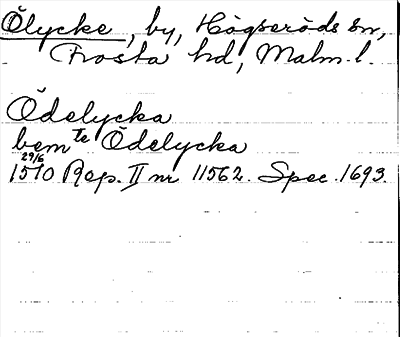 Ölycke, by, Högseröds sn,
Frosta hd, Malm. l.
Ödelycka
bem te Ödelycka
29/6
1510 Rep. II nr 11562. Spec. 1693.